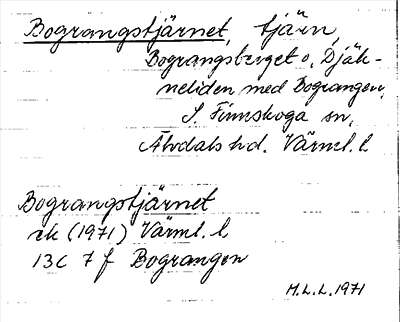 Bograngstjärnet, tjärn,
Bograngsberget o. Djäk-
neliden med Bograngen,
S. Finnskoga sn,
Älvdals hd. Värml. l.
Bograngstjärnet
ek (1971) Värml. l.
13C 7 f Bograngen
M.L.L. 1971